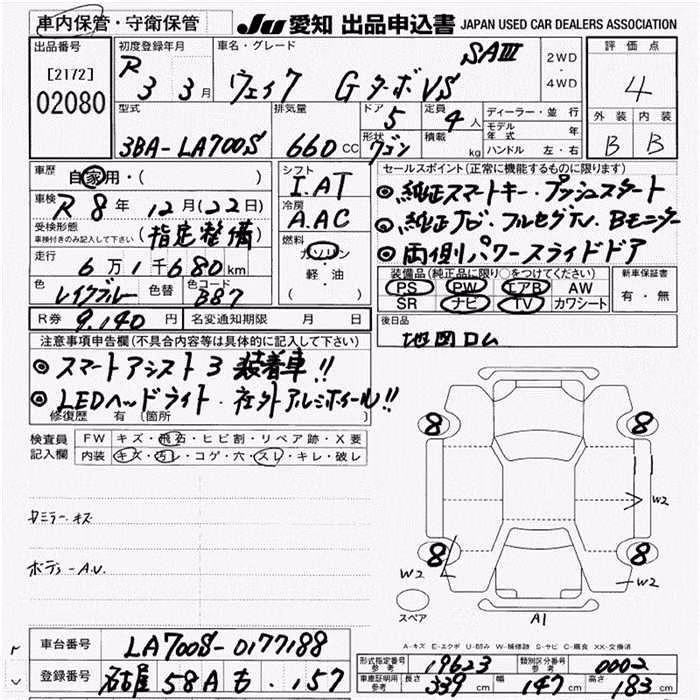 車内保管・守衛保管 JU 愛知 出品申込書 JAPAN USED CAR DEALERS ASSOCIATION
出品番号 初度登録年月 車名・グレード 評価点
[2172] R3 3月 ウェイク Gターボ VS SAⅢ 2WD・4WD 4
02080 型式 排気量 ドア 定員 ディーラー・並行 外装 内装
3BA-LA700S 660 CC 5 4人 モデル年式 年 B B
形状 ワゴン 積載 kg ハンドル 左・右
車歴 自家用・( ) シフト I.AT セールスポイント(正常に機能するものに限ります)
車検 R8年 12月(22日) 冷房 A.AC ◎純正スマートキー・プッシュスタート
受検形態 車検付きのみ記入して下さい (指定整備) 燃料 ◎純正ナビ・フルセグTV・Bモニター
走行 6万1千680km ガソリン 軽・油 ◎両側パワースライドドア
色 レイクブルー 色替 色コード B87 装備品(純正品に限り○をつけてください) 新車保証書
PS PW エアB AW 有・無
SR ナビ TV カワシート
R券 9,140円 名変通知期限 月 日 後日品
地図ロム
注意事項申告欄(不具合内容等は具体的に記入して下さい)
◎スマートアシスト3 装着車!!
◎LEDヘッドライト・社外アルミホイール!!
修復歴 有(箇所
検査員記入欄 FW キズ・飛石・ヒビ割・リペア跡・X要
内装 キズ・汚レ・コゲ・穴・スレ・キレ・破レ
8 8
W2
Rミラーキズ
ボディーA.U.
8 8
W2 W2
スペア A1
A-キズ E-エクボ U-凹み W-補修跡 S-サビ C-腐食 XX-交換済
車台番号 LA700S-0177188 型式指定番号 参考 19623 類別区分番号 参考 0002
登録番号 名古屋 58A も・157 車庫証明用 参考 長さ 339cm 幅 147cm 高さ 183cm